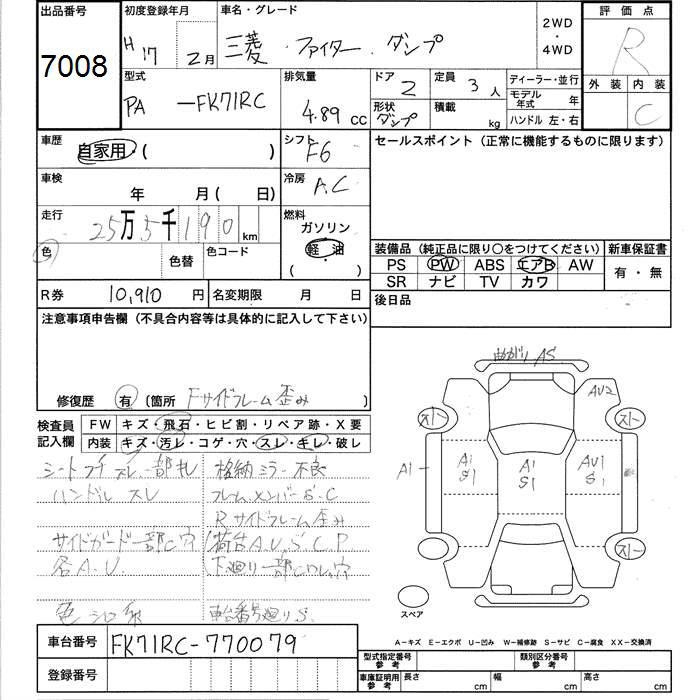 出品番号
7008
初度登録年月
H17 2月
車名・グレード
三菱 ・ ファイター ・ ダンプ
2WD
・
4WD
評価点
R
外装 内装
C
型式
PA -FK71RC
排気量
4.89 cc
ドア 2
定員 3 人
形状 ダンプ
積載 kg
ディーラー・並行
モデル年式 年
ハンドル 左・右
車歴
自家用・( )
シフト
F6
車検
年 月( 日)
冷房
A.C
走行
25万5千190 km
燃料
ガソリン
軽・油
( )
色
色替
色コード
R券 10,910 円
名変期限 月 日
セールスポイント(正常に機能するものに限ります)
装備品(純正品に限り○をつけてください)
新車保証書
PS PW ABS エアB AW
SR ナビ TV カワ
有・無
後日品
注意事項申告欄(不具合内容等は具体的に記入して下さい)
修復歴 有 (箇所 Fサイドフレーム歪み )
検査員記入欄
FW キズ・飛石・ヒビ割・リペア跡・X要
内装 キズ・汚レ・コゲ・穴・スレ・キレ・破レ
ハンドル スレ
格納ミラー不良
フレームメンバーS.C
Rサイドフレーム歪み
サイドガード一部C穴
荷台A.U.S.C.P
各A.U.
下廻り一部Cのし穴
色シロ系
車台番号廻りS.
曲がり AS
AU2
スト
スト
A1
A1
S1
A1
S1
AU1
S1
スト
スペア
車台番号 FK71RC-770079
登録番号
A-キズ E-エクボ U-凹み W-補修跡 S-サビ C-腐食 XX-交換済
型式指定番号 参考
類別区分番号 参考
車庫証明用 参考
長さ cm
幅 cm
高さ cm